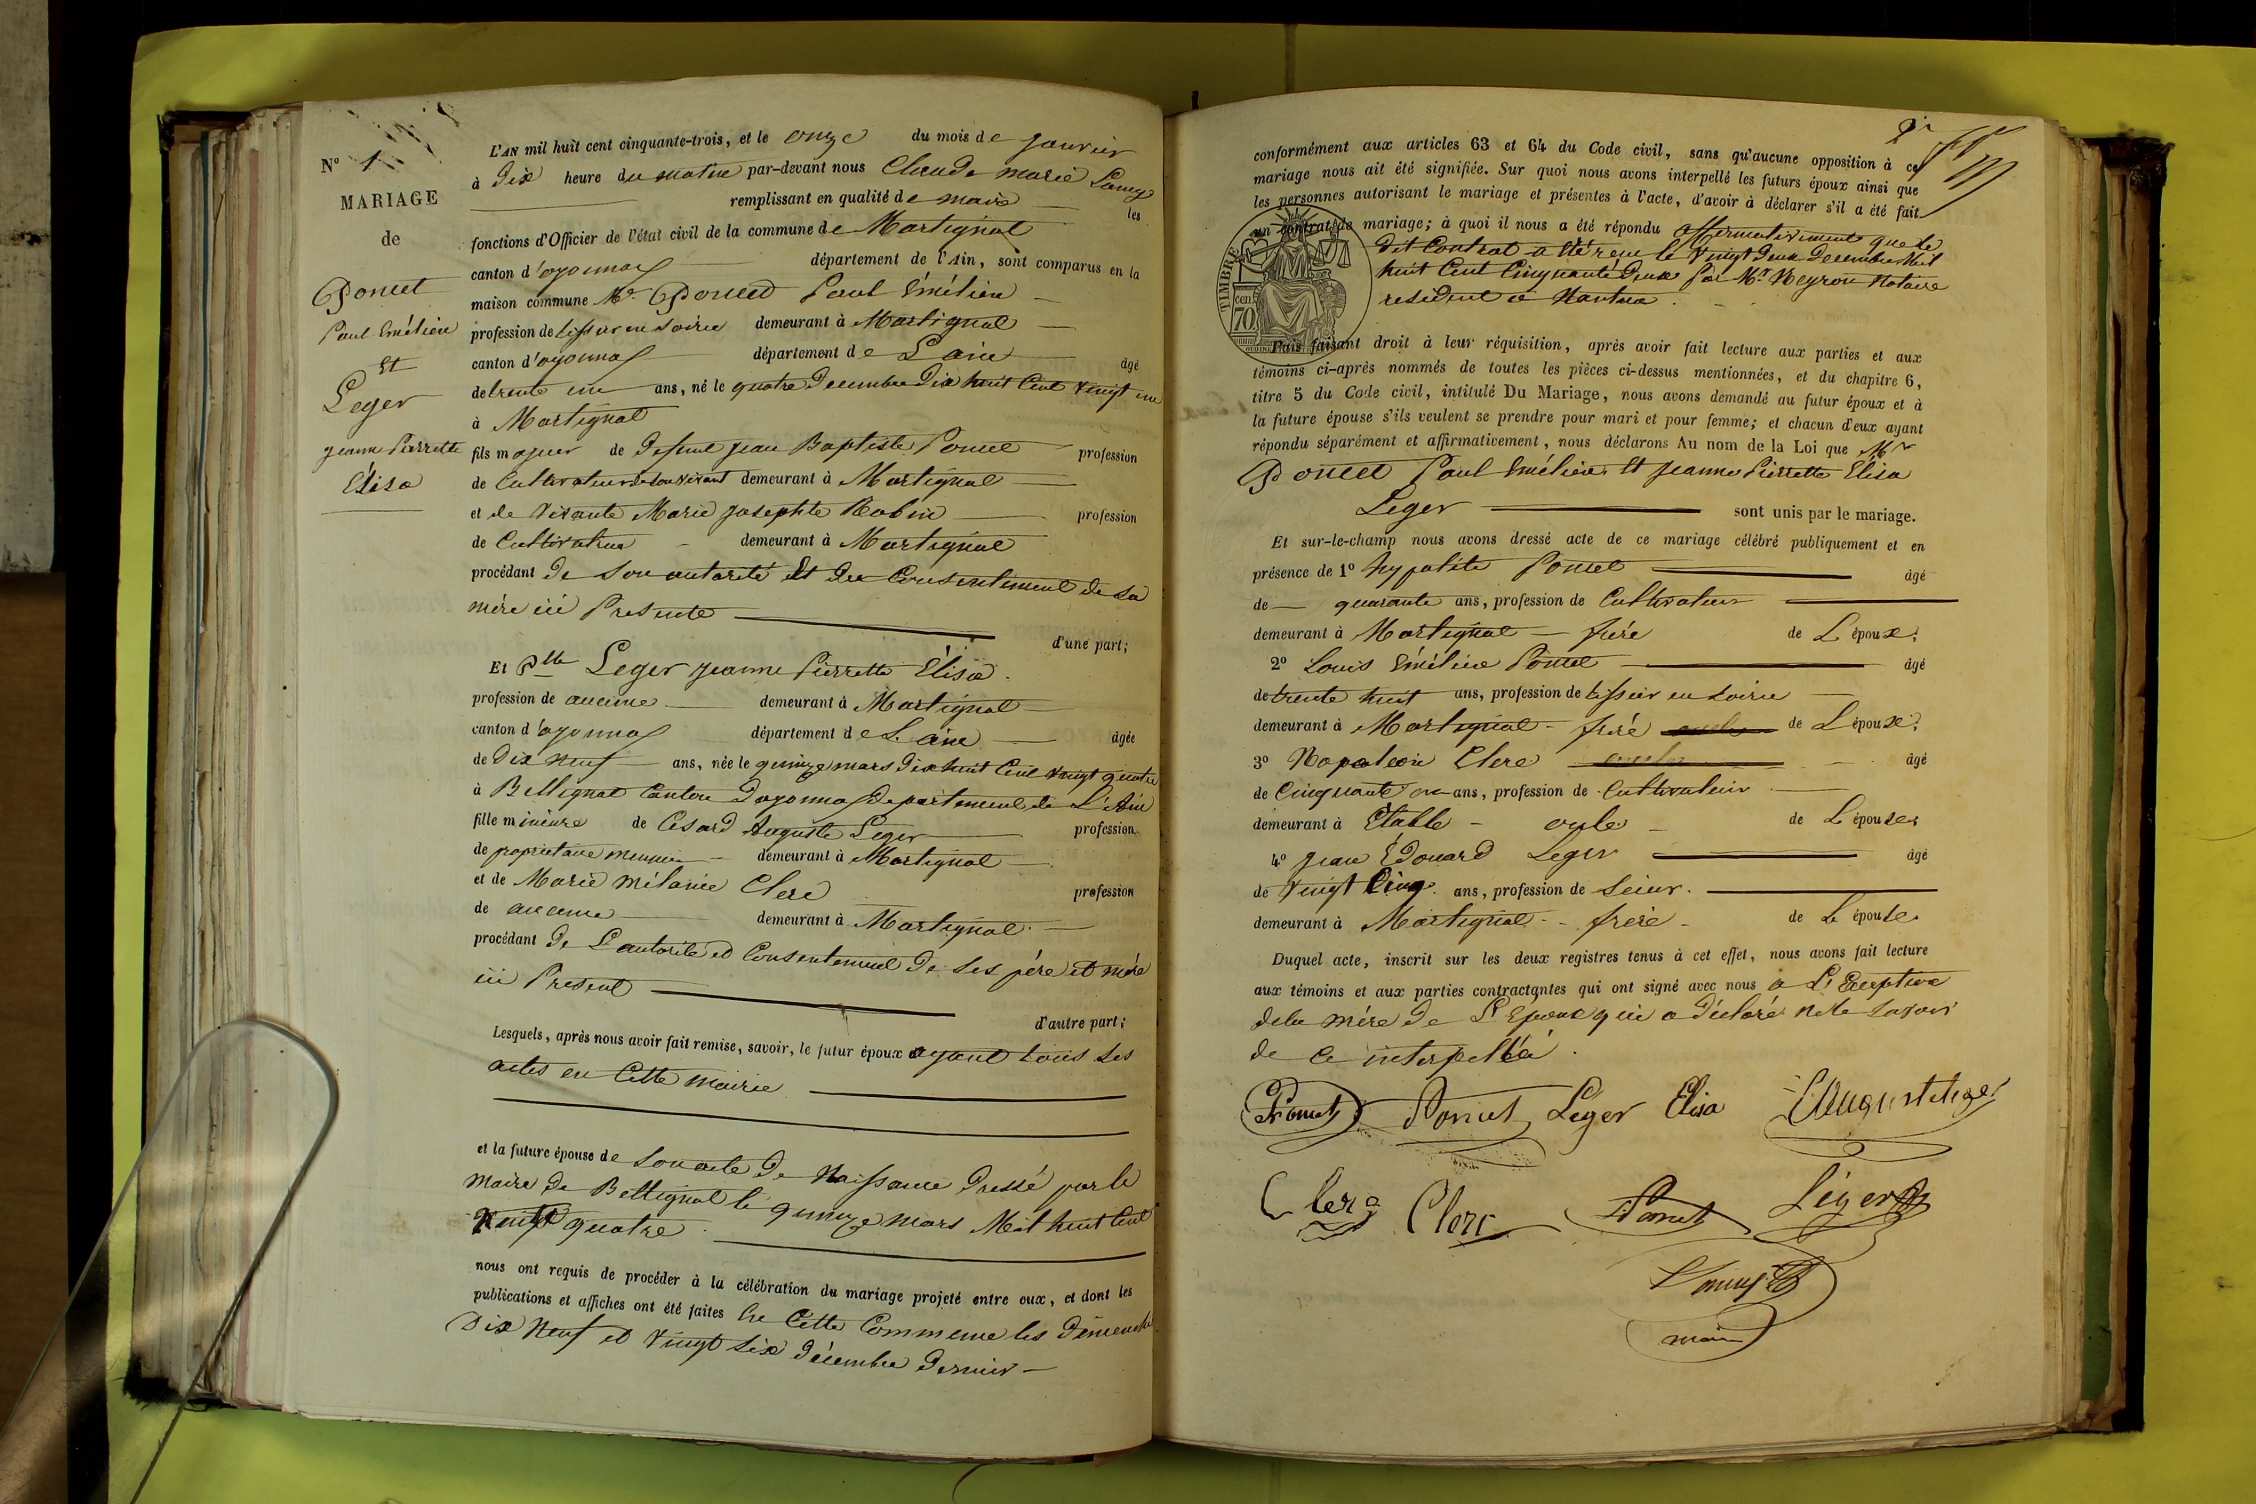 N° 1
MARIAGE
de
Poncet
Paul Emélien
et
Leger
jeanne Pierrette
Élisa
L'AN mil huit cent cinquante-trois, et le onze du mois de janvier
à dix heure du matin par-devant nous Claude marie
remplissant en qualité de maire les
fonctions d'Officier de l'état civil de la commune de Martignat
canton d'oyonnax département de l'Ain, sont comparus en la
maison commune Mr Poncet Paul Émélien
profession de tisseur en soirie demeurant à Martignat
canton d'oyonnax département de Lain âgé
de trente un ans, né le quatre decembre dix huit Cent vingt un
à Martignat
fils majeur de defunt jean Baptiste Poncet profession
de Cultivateur de son vivant demeurant à Martignat
et de vivante Marie josephte Robin profession
de Cultivatrice demeurant à Martignat
procédant de son autorité Et du Consentement de sa
mére ici Presente
d'une part;
Et Dlle Leger jeanne Pierrette Élisa.
profession de aucune demeurant à Martignat
canton d'oyonnax département de L'ain âgée
de Dix neuf ans, née le quinze mars dix huit Cent vingt quatre
à Bellignat Canton doyonnax departement de L'Ain
fille mineure de Césard Auguste Leger profession
de proprietaire meunier demeurant à Martignat
et de Marie mélanie Clerc profession
de aucune demeurant à Martignat
procédant de L'autorité et Consentement de ses pére et mére
ici Present
d'autre part;
Lesquels, après nous avoir fait remise, savoir, le futur époux ayant tous ses
actes en Cette mairie
et la future épouse de son acte de Naissance dressé par le
maire de Bellignat le quinze mars Mil huit Cent
vingt quatre.
nous ont requis de procéder à la célébration du mariage projeté entre eux, et dont les
publications et affiches ont été faites En Cette Commune les dimanche
Dix Neuf et vingt six décembre dernier
conformément aux articles 63 et 64 du Code civil, sans qu'aucune opposition à ce
mariage nous ait été signifiée. Sur quoi nous avons interpellé les futurs époux ainsi que
les personnes autorisant le mariage et présentes à l'acte, d'avoir à déclarer s'il a été fait
un contrat de mariage; à quoi il nous a été répondu affermativement que le
dit Contrat a été reçu le vingt deux decembre Mil
huit Cent Cinquante deux par Mr Neyron Notaire
resident à Nantua.
TIMBRE
cen
70
Puis faisant droit à leur réquisition, après avoir fait lecture aux parties et aux
témoins ci-après nommés de toutes les pièces ci-dessus mentionnées, et du chapitre 6,
titre 5 du Code civil, intitulé Du Mariage, nous avons demandé au futur époux et à
la future épouse s'ils veulent se prendre pour mari et pour femme; et chacun d'eux ayant
répondu séparément et affirmativement, nous déclarons Au nom de la Loi que Mr
Poncet Paul Emélien Et jeanne Pierrette Élisa
Leger sont unis par le mariage.
Et sur-le-champ nous avons dressé acte de ce mariage célébré publiquement et en
présence de 1° hypolite Poncet âgé
de quarante ans, profession de Cultivateur
demeurant à Martignat frére de L'époux;
2° Louis Émélien Poncet âgé
de trente huit ans, profession de tisseur en soirie
demeurant à Martignat frére de L'époux;
3° Napoleon Clerc âgé
de Cinquante un ans, profession de Cultivateur
demeurant à Étable oncle de L'épouse;
4° jean Édouard Leger âgé
de vingt Cinq ans, profession de Scieur.
demeurant à Martignat frére de L'épouse.
Duquel acte, inscrit sur les deux registres tenus à cet effet, nous avons fait lecture
aux témoins et aux parties contractantes qui ont signé avec nous a L'Exeption
de la mére de L'Epoux qui a déclaré ne le savoir
de Ce interpellé.
Poncet Poncet Leger Elisa CAuguste Leger
Clerc Clerc Poncet Léger
maire